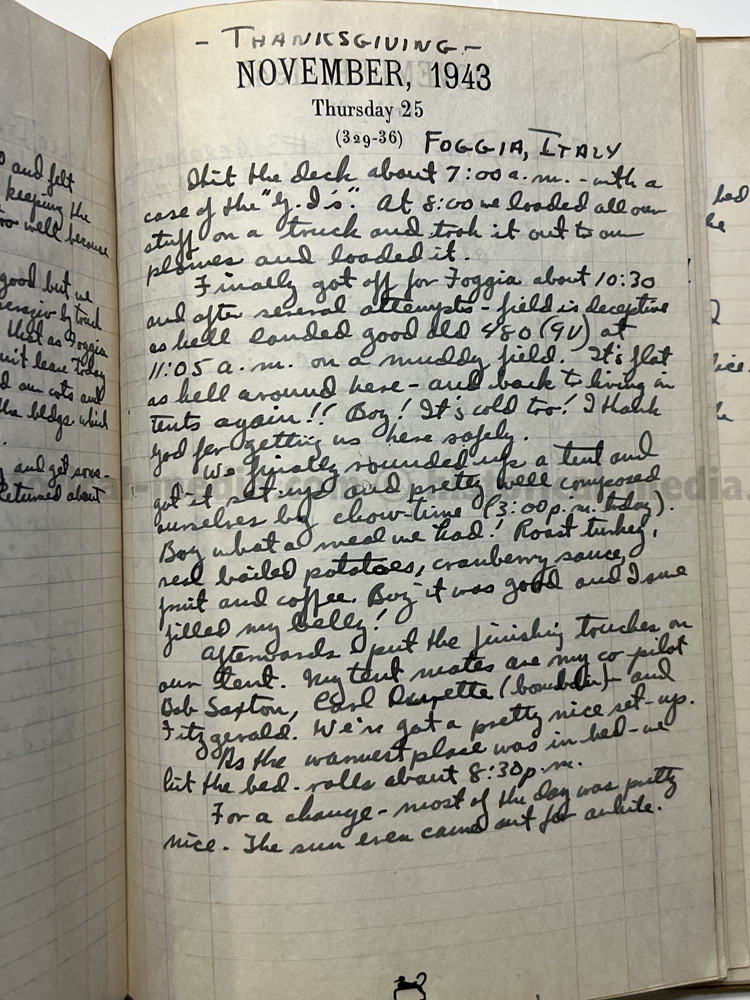 - THANKSGIVING -
NOVEMBER, 1943
Thursday 25
(329-36) FOGGIA, ITALY
I hit the deck about 7:00 a.m. - with a
case of the "G. I's". At 8:00 we loaded all our
stuff on a truck and took it out to our
planes and loaded it.
Finally got off for Foggia about 10:30
and after several attempts - field is deceptive
as hell landed good old 480 (9V) at
11:05 a.m. on a muddy field. It's flat
as hell around here - and back to living in
tents again!! Boy! It's cold too! I thank
God for getting us here safely.
We finally rounded up a tent and
got it set up and pretty well composed
ourselves by chow-time (3:00 p.m. today).
Boy what a meal we had! Roast turkey,
real boiled potatoes, cranberry sauce,
fruit and coffee. Boy it was good and I sure
filled my belly!
Afterwards I put the finishing touches on
our tent. My tent mates are my co-pilot
Bob Saxton, Carl (bombdr) - and
Fitzgerald. We've got a pretty nice set-up.
As the warmest place was in bed - we
hit the bed-rolls about 8:30 p.m.
For a change - most of the day was pretty
nice. The sun even came out for awhile.
and felt
keeping the
too well because
good but we
by truck
that as Foggia
leave today
our cots and
the bldgs which
and get some-
Returned about
bed